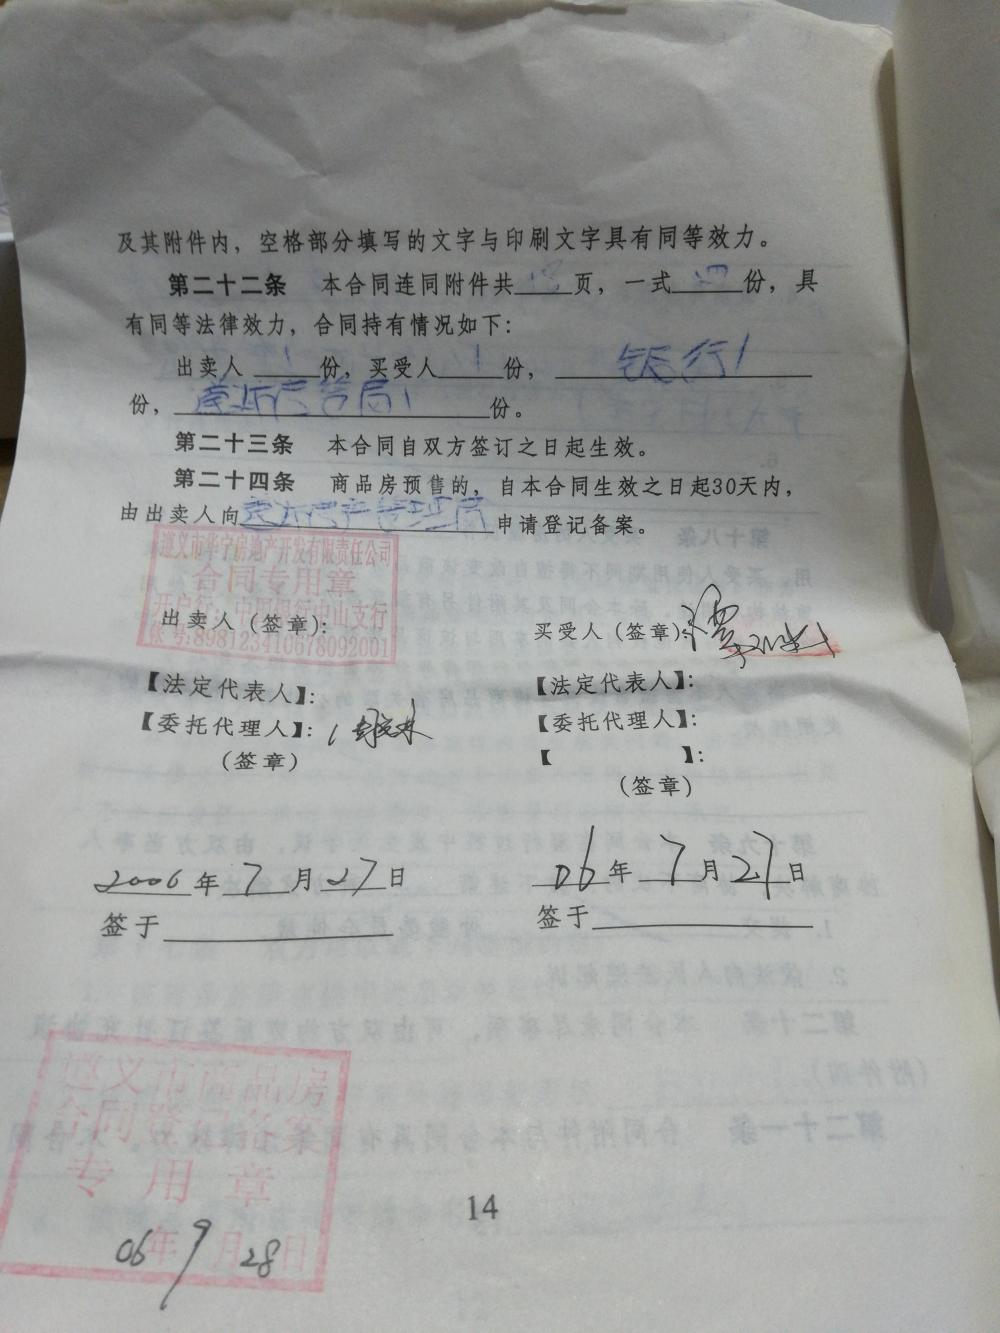 及其附件内，空格部分填写的文字与印刷文字具有同等效力。
第二十二条 本合同连同附件共____页，一式 四 份，具
有同等法律效力，合同持有情况如下：
出卖人 1 份，买受人 1 份， 银行1
份， 房管局1 份。
第二十三条 本合同自双方签订之日起生效。
第二十四条 商品房预售的，自本合同生效之日起30天内，
由出卖人向 房产管理局 申请登记备案。
遵义市华宁房地产开发有限责任公司
合同专用章
开户行：中国银行中山支行
帐号：898123410678092001
出卖人（签章）：
买受人（签章）：
【法定代表人】：
【法定代表人】：
【委托代理人】：
【委托代理人】：
（签章）
【 】：
（签章）
2006年7月27日
06年7月27日
签于
签于
遵义市商品房
合同登记备案
专用章
06年9月28日
14